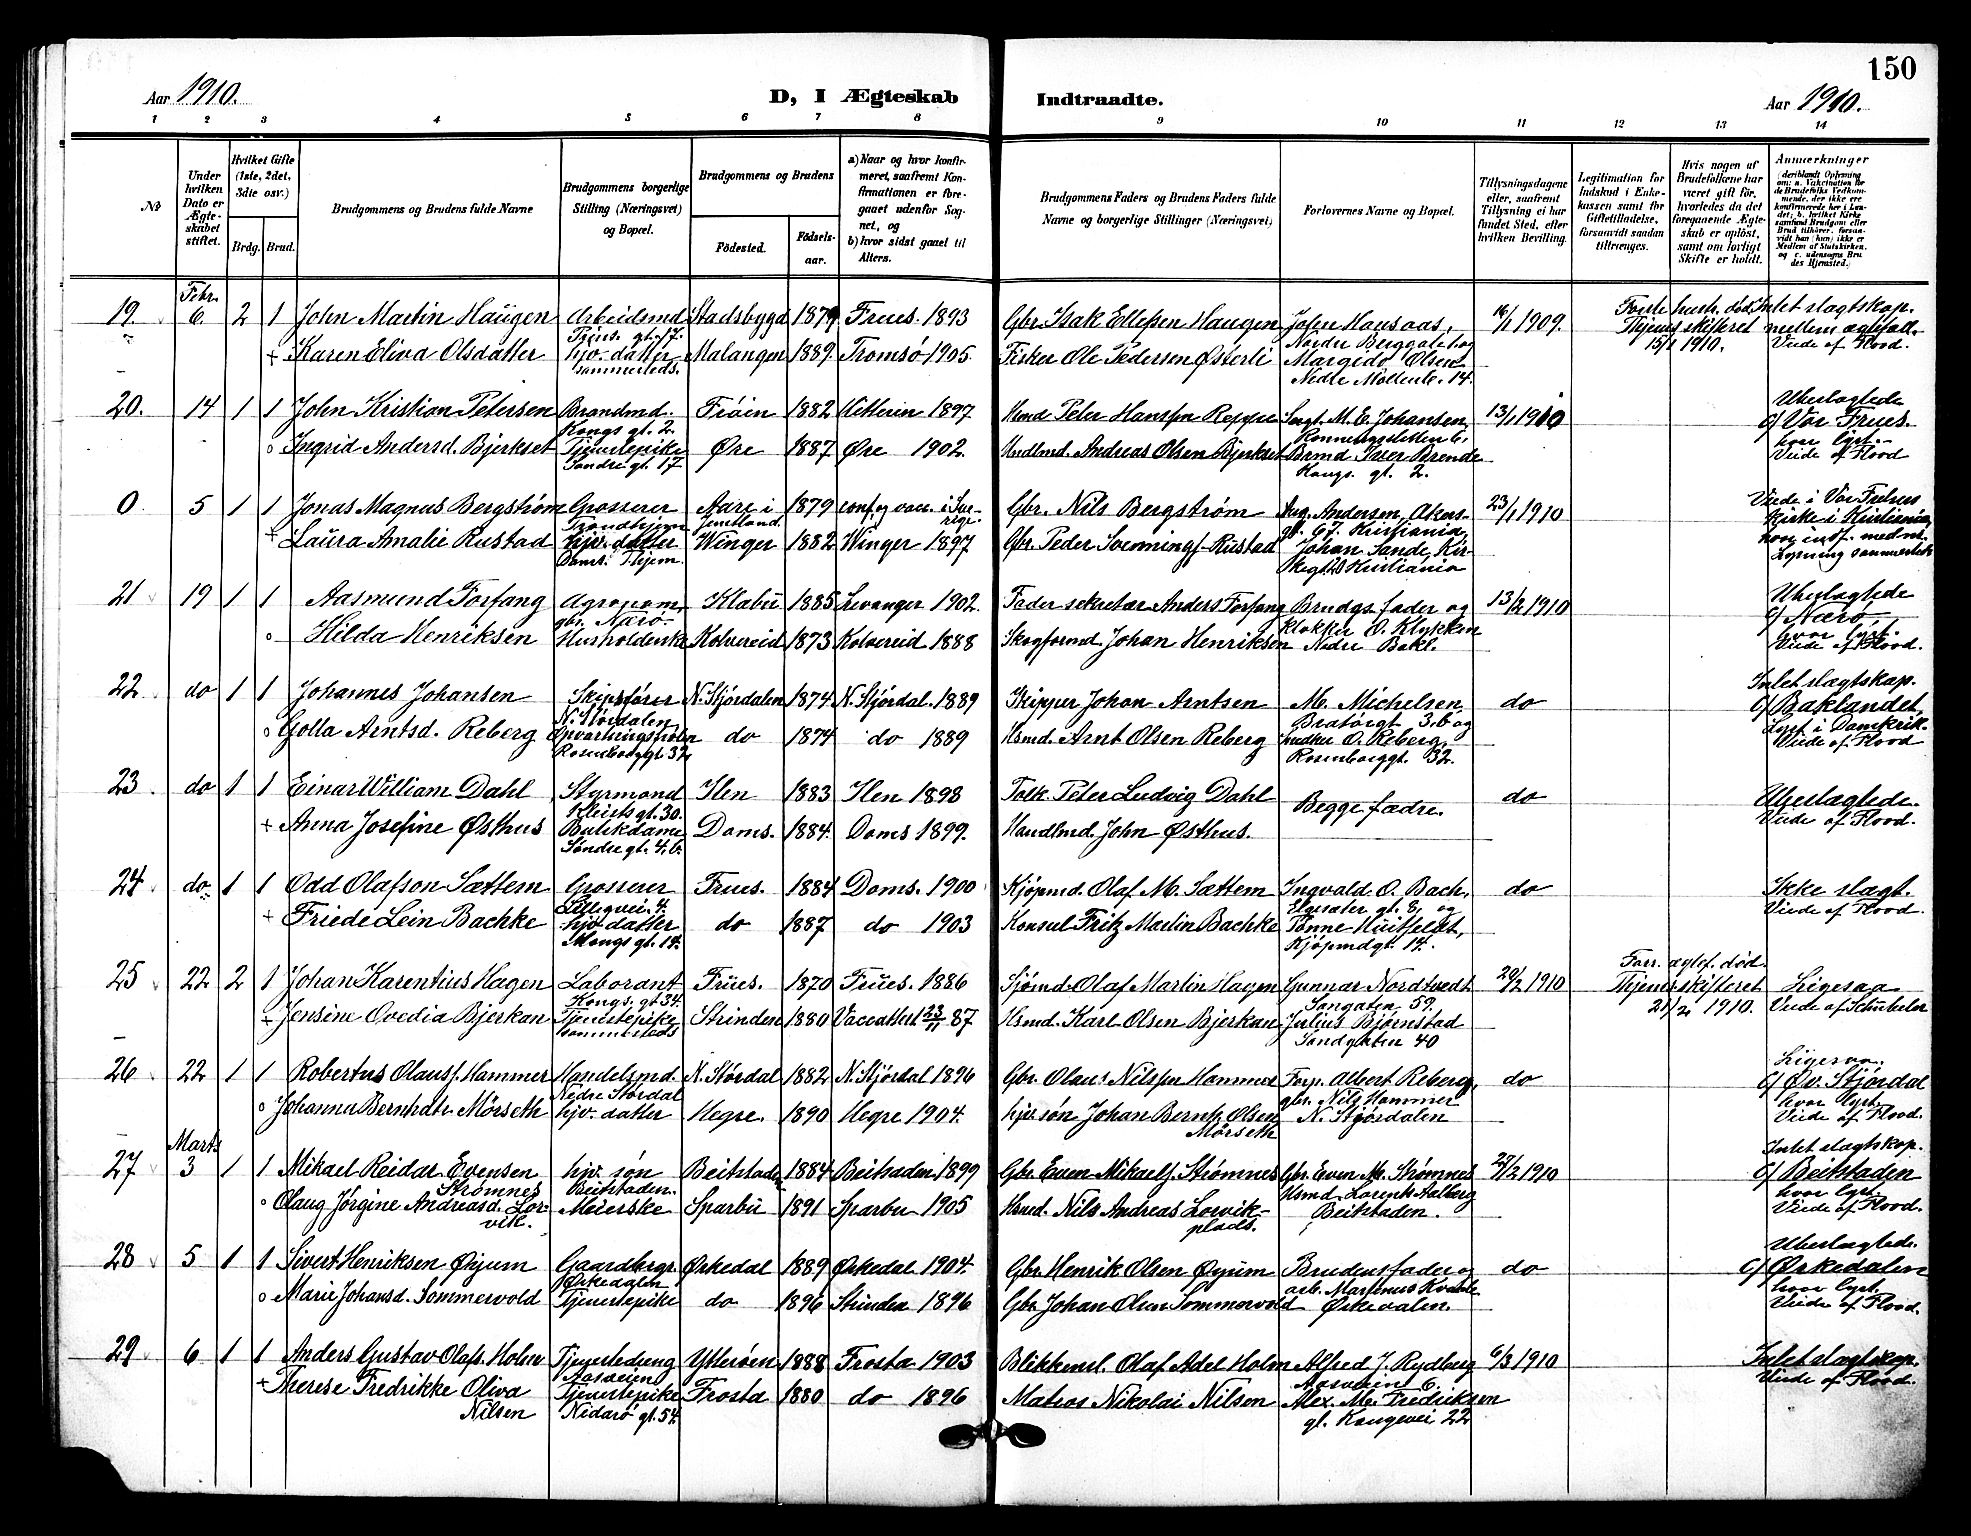 150
Aar 1910.
D, I Ægteskab Indtraadte.
Aar 1910.
1 2 3 4 5 6 7 8 9 10 11 12 13 14
No
Under hvilken Dato er Ægteskabet stiftet.
Hvilket Gifte (1ste, 2det, 3die osv.)
Brdg. Brud.
Brudgommens og Brudens fulde Navne
Brudgommens borgerlige Stilling (Næringsvei) og Bopæl.
Brudgommens og Brudens
Fødested.
Fødsels-aar.
a) Naar og hvor konfirmeret, saafremt Konfirmationen er foregaaet udenfor Sognet, og
b) hvor sidst gaaet til Alters.
Brudgommens Faders og Brudens Faders fulde Navne og borgerlige Stillinger (Næringsvei)
Forlovernes Navne og Bopæl.
Tillysningsdagene eller, saafremt Tillysning ei har fundet Sted, efter hvilken Bevilling.
Legitimation for Indskud i Enkekassen samt for Giftetilladelse, forsaavidt saadan tiltrænges.
Hvis nogen af Brudefolkene har været gift før, hvorledes da det foregaaende Ægteskab er opløst, samt om lovligt Skifte er holdt.
Anmerkninger
19. Febr. 6. 2 1 John Martin Haugen Arbeidsmd Stadsbygd 1879 Frues. 1893 Gbr. Isak Ellefsen Haugen 16/1 1909.
Første hustr. død. Thjems skifteret 15/1 1910. Intet slagtskap. Viede af Flood.
+ Karen Eliva Olsdatter hjv. datter sammesteds. Malangen 1889 Tromsø 1905. Fisker Ole Pedersen Østerli Margido Olsen Nedre Møllenb. 14.
20. 14 1 1 John Kristian Petersen Brandmd. Kongs gt. 2. Frøien 1882 Hitteren 1897 Peter Hansen Reppe M. E. Johansen, 13/1 1910 Ubeslægtede
c/ Vor Frues. hvor lyst. Viede af Flood
o Ingrid Andersd. Bjerkset Tjenestepike Søndre gt. 17 Øre 1887 Øre 1902. Andreas Olsen Bjerkset Brmd Iver Brende Kongs. gt. 2.
0 5 1 1 Jonas Magnus Bergstrøm Grosserer Trondhjem Aare i Jemtland. 1879 conf. og vacc. i Sverige. Gbr. Nils Bergstrøm Aug. Andersen, Akersgt. 67. Kristiania, 23/1 1910 Viede i Vor Frelsers Kirke i Kristiania,
+ Laura Amalie Rustad hjv. datter Winger 1882 Winger 1897 Gbr. Peder Svenningf. Rustad Johan Sande, Kristiania
21 19 1 1 Aasmund Forfang Agronom, gbr. Nærø Klæbu 1885 Levanger 1902. Fader sekretær Anders Forfang Brudgs. fader og klokker O. Klykken 13/2 1910 Ubeslægtede
c/ Nærø, hvor lyst. Viede af Flood.
o Hilda Henriksen Kolvereid 1873 Kolvereid 1888 Skogformd. Johan Henriksen Nedre Bakl.
22 do 1 1 Johannes Johansen Skipsfører N. Størdalen N. Stjørdalen 1874 N. Stjørdal. 1889 Skipper Johan Arntsen M. Michelsen, Bratørgt 3,b og do Intet slægtskap.
c/ Baklandet, Lyst i Domkirk. Viede af Flood
o Golla Arntsd. Reberg Opvartningspike Rosenborggt 32. do 1874 do 1889 Hsmd. Arnt Olsen Reberg O. Reberg, Rosenborggt. 32.
23 do 1 1 Einar William Dahl Styrmand Kleists gt. 30. Ilen 1883 Ilen 1898 Tolk. Peter Ludvig Dahl Begge fædre. do Ubeslægtede. Viede af Flood.
+ Anna Josefine Østhus Butikdame Søndre gt. 4,b. Doms. 1884. Doms 1899. Handlmd. John Østhus.
24 do 1 1 Odd Olafson Sættem Grosserer Frues. 1884 Doms. 1900 Kjøpmd. Olaf M. Sættem Ingvald O. Bach, Elgesæter gt. 8, og do Ikke slægt. Viede af Flood.
+ Friede Lein Bachke hjv. datter do 1887 do 1903 Konsul Fritz Martin Bachke Tønne Huitfeldt, Kjøpmdgt. 14.
25 22 2 1 Johan Karentius Hagen Laborant Kongs. gt 34. Frues. 1870 Frues. 1886 Sjømd. Olaf Martin Hagen Gunnar Nordtvedt 20/2 1910 Forr. ægtef. død. Thjems skifteret 21/2 1910. Ligesaa Viede af Schübeler
+ Jensine Ovedia Bjerkan Tjenestepike sammesteds Strinden 1880 Vaccattest 23/11 87 Hsmd. Karl Olsen Bjerkan, Julius Bjørnstad Sandgaten 40
26 22 1 1 Robertus Olausf. Hammer Handelsmd. Nedre Størdal N. Størdal 1882 N. Stjørdal 1896 Gbr. Olaus Nilsen Hammer Forp. Albert Reberg, gbr. Nils Hammer do Ligesaa.
c/ Øv. Stjørdal hvor lyst. Viede af Flood.
o Johanna Bernhdtr. Mørseth hjv. datter Hegre. 1890 Hegre 1904. hjv. søn Johan Bernh. Olsen Mørseth N. Stjørdalen
27 Marts 3 1 1 Mikael Reidar Evensen Strømnes hjv. søn Beitstaden. Beitstaden 1884 Beitstaden 1899 Gbr. Even Mikaelf. Strømnes Gbr. Even M. Strømnes 27/2 1910 Intet slagtskap.
c/ Beitstaden hvor lyst. Viede af Flood.
o Olaug Jørgine Andreasd. Lorvik. Meierske Sparbu 1891 Sparbu 1905 Hsmd. Nils Andreas Lorvik-plads. Hsmd. Lorents Aalberg Beitstaden.
28 5 1 1 Sivert Henriksen Øyum Gaardbrgr. Ørkedalen Ørkedal 1889 Ørkedal 1904. Gbr. Henrik Olsen Øyum Brudens fader og do Ubeslægtede.
c/ Ørkedalen hvor lyst. Viede af Flood.
o Marie Johansd. Sommervold Tjenestepike do 1896 Strinden 1896 Gbr. Johan Olsen Sommervold arb. Martinus Kvaale Ørkedalen.
29 6 1 1 Anders Gustav Olafs. Holm Tjenestedreng Aasveien Ytterøen 1888 Frosta 1903 Blikkensl. Olaf Adel Holm Alfred J. Rydberg Aasveien 6. 6/3 1910 Intet slagtskap. Viede af Flood.
+ Therese Fredrikke Oliva Nilsen Tjenestepike Nidarø gt. 54. Frosta 1880 do 1896 Matros Nikolai Nilsen Alex. M. Fredriksen gl. Kongevei 22